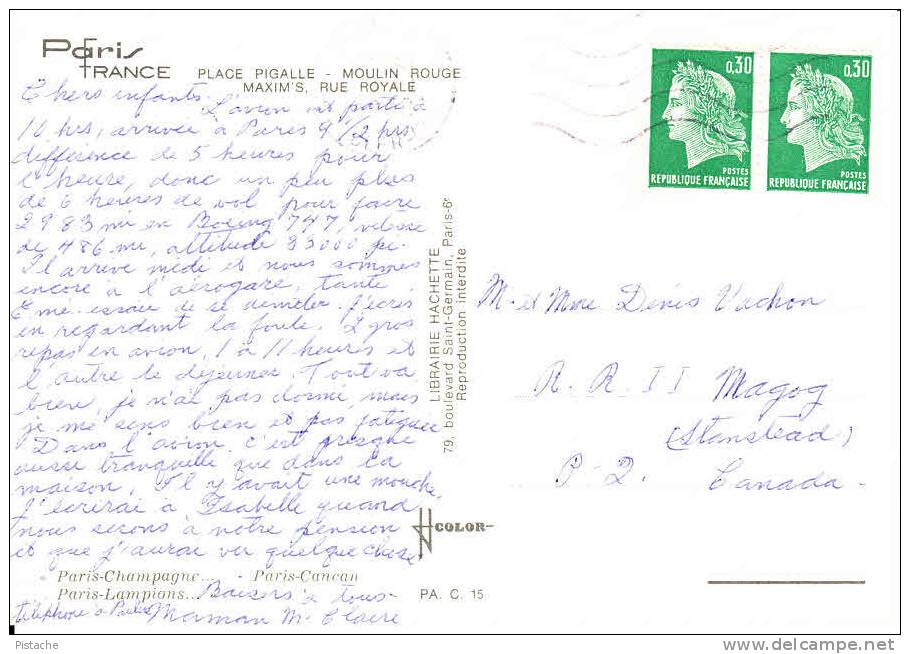 Paris
FRANCE
PLACE PIGALLE - MOULIN ROUGE
MAXIM'S, RUE ROYALE
Chers enfants
L'avion est parti à
10 hrs, arrivée à Paris 9 1/2 hrs
différence de 5 heures pour
l'heure, donc un peu plus
de 6 heures de vol pour faire
2983 mi en Boeing 747, vitesse
de 486 mi, altitude 33000 pi.
Il arrive midi et nous sommes
encore à l'aérogare, tante
E me essaie de se démêler. J'écris
en regardant la foule. 2 gros
repas en avion, 1 à 11 heures et
l'autre le dejeuner. Tout va
bien, je n'ai pas dormi, mais
je me sens bien et pas fatiguée
Dans l'avion c'est presque
aussi tranquille que dans la
maison. Il y avait une mouche.
J'écrirai à Isabelle quand
nous serons à notre pension
et que j'aurai vu quelque chose
Paris-Champagne... - Paris-Cancan
Paris-Lampions...
Baisers à tous-
téléphone à
Maman M. Claire
LIBRAIRIE HACHETTE
79, boulevard Saint-Germain, Paris-6e
Reproduction interdite
COLOR
PA. C. 15
0,30
POSTES
REPUBLIQUE FRANÇAISE
0,30
POSTES
REPUBLIQUE FRANÇAISE
M. et Mme Denis Vachon
R. R. II Magog
(Stanstead)
P. Q. Canada-
Pistache
delcampe.net